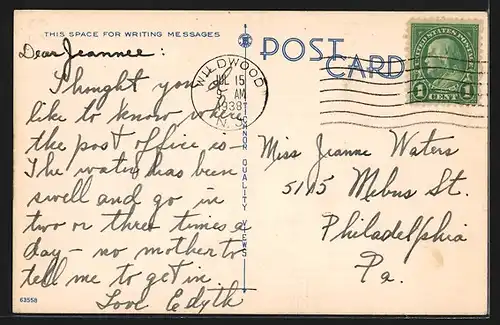 THIS SPACE FOR WRITING MESSAGES
Dear Jeannee:
I thought you'd
like to know where
the post office is–
The water has been
swell and go in
two or three times a
day – no mother to
tell me to get in.
Love Edyth
63558
TICHNOR QUALITY VIEWS
POST
CARD
WILDWOOD
JUL 15
9 AM
1938
N. J.
UNITED STATES POSTAGE
1 CENT 1
Miss Jeanne Waters
5115 Mebus St.
Philadelphia
Pa.